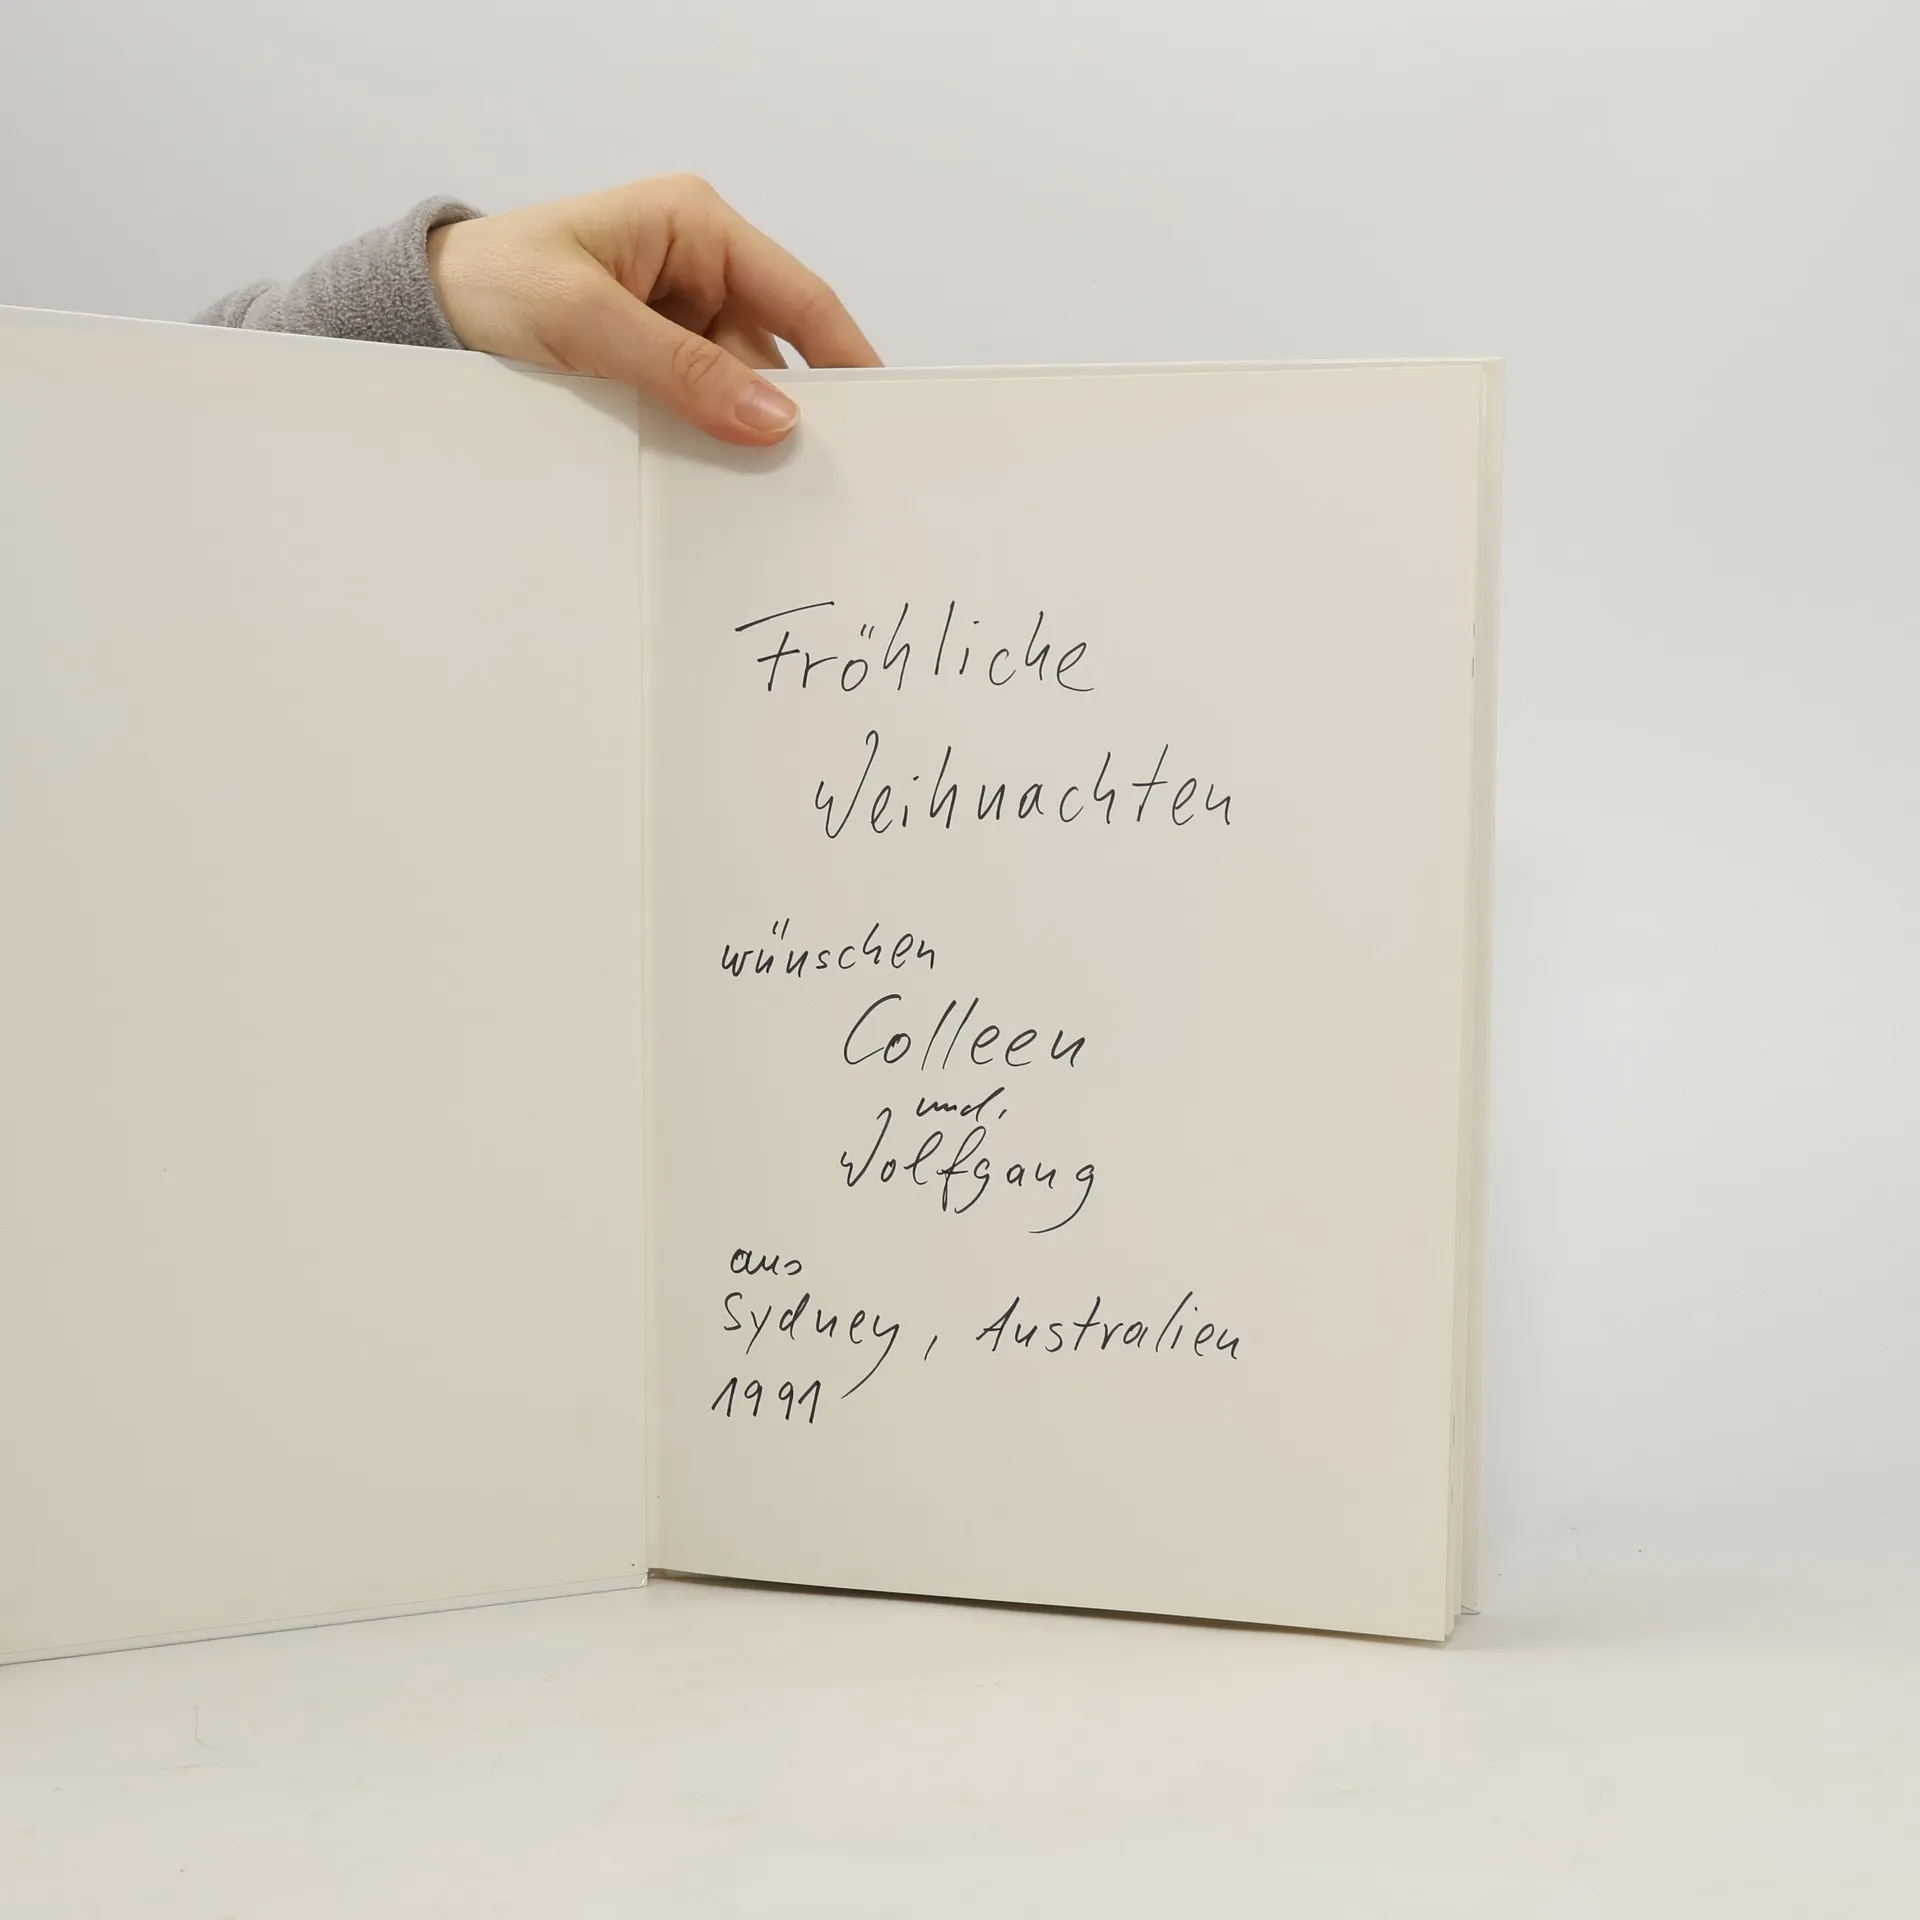 Fröhliche
Weihnachten
wünschen
Colleen
und
Wolfgang
aus
Sydney, Australien
1991